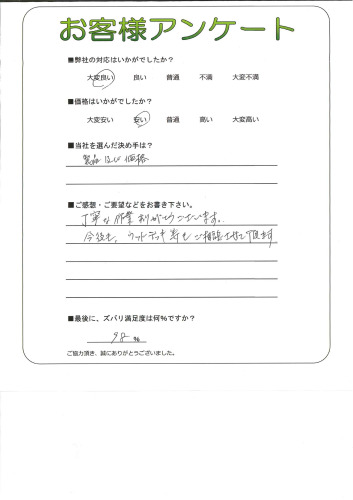 お客様アンケート
■弊社の対応はいかがでしたか？
大変良い 良い 普通 不満 大変不満
■価格はいかがでしたか？
大変安い 安い 普通 高い 大変高い
■当社を選んだ決め手は？
製品 及び 価格
■ご感想・ご要望などをお書き下さい。
丁寧な作業ありがとうございます。
今後も、ウッドデッキ等もご相談させて頂きます
■最後に、ズバリ満足度は何％ですか？
98 %
ご協力頂き、誠にありがとうございました。